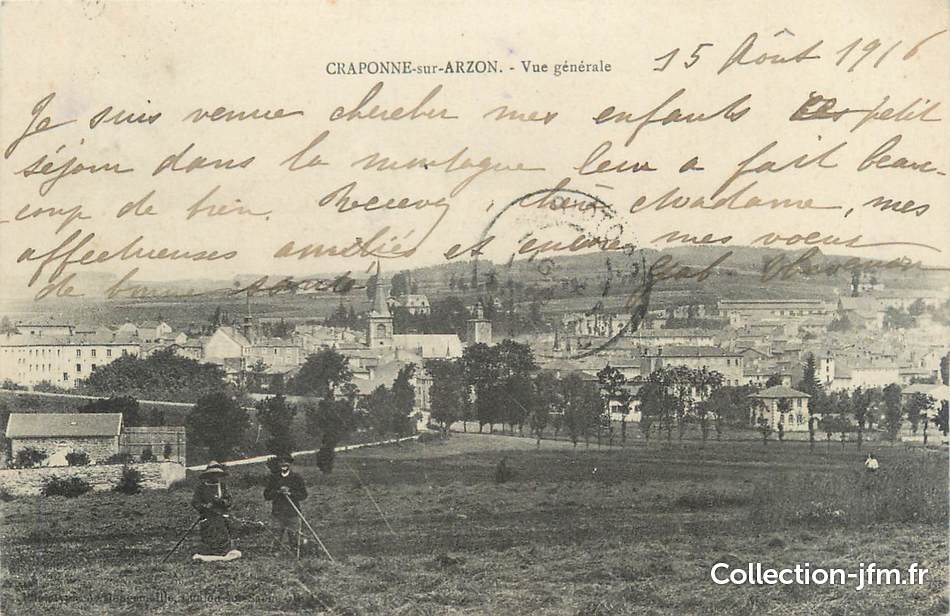 CRAPONNE-sur-ARZON. - Vue générale
15 Août 1916
Je suis venue chercher mes enfants petit
séjour dans la montagne leur a fait beau-
coup de bien. Recevez, chère Madame, mes
affectueuses amitiés et encore mes voeux
de bonne santé
Collection-jfm.fr